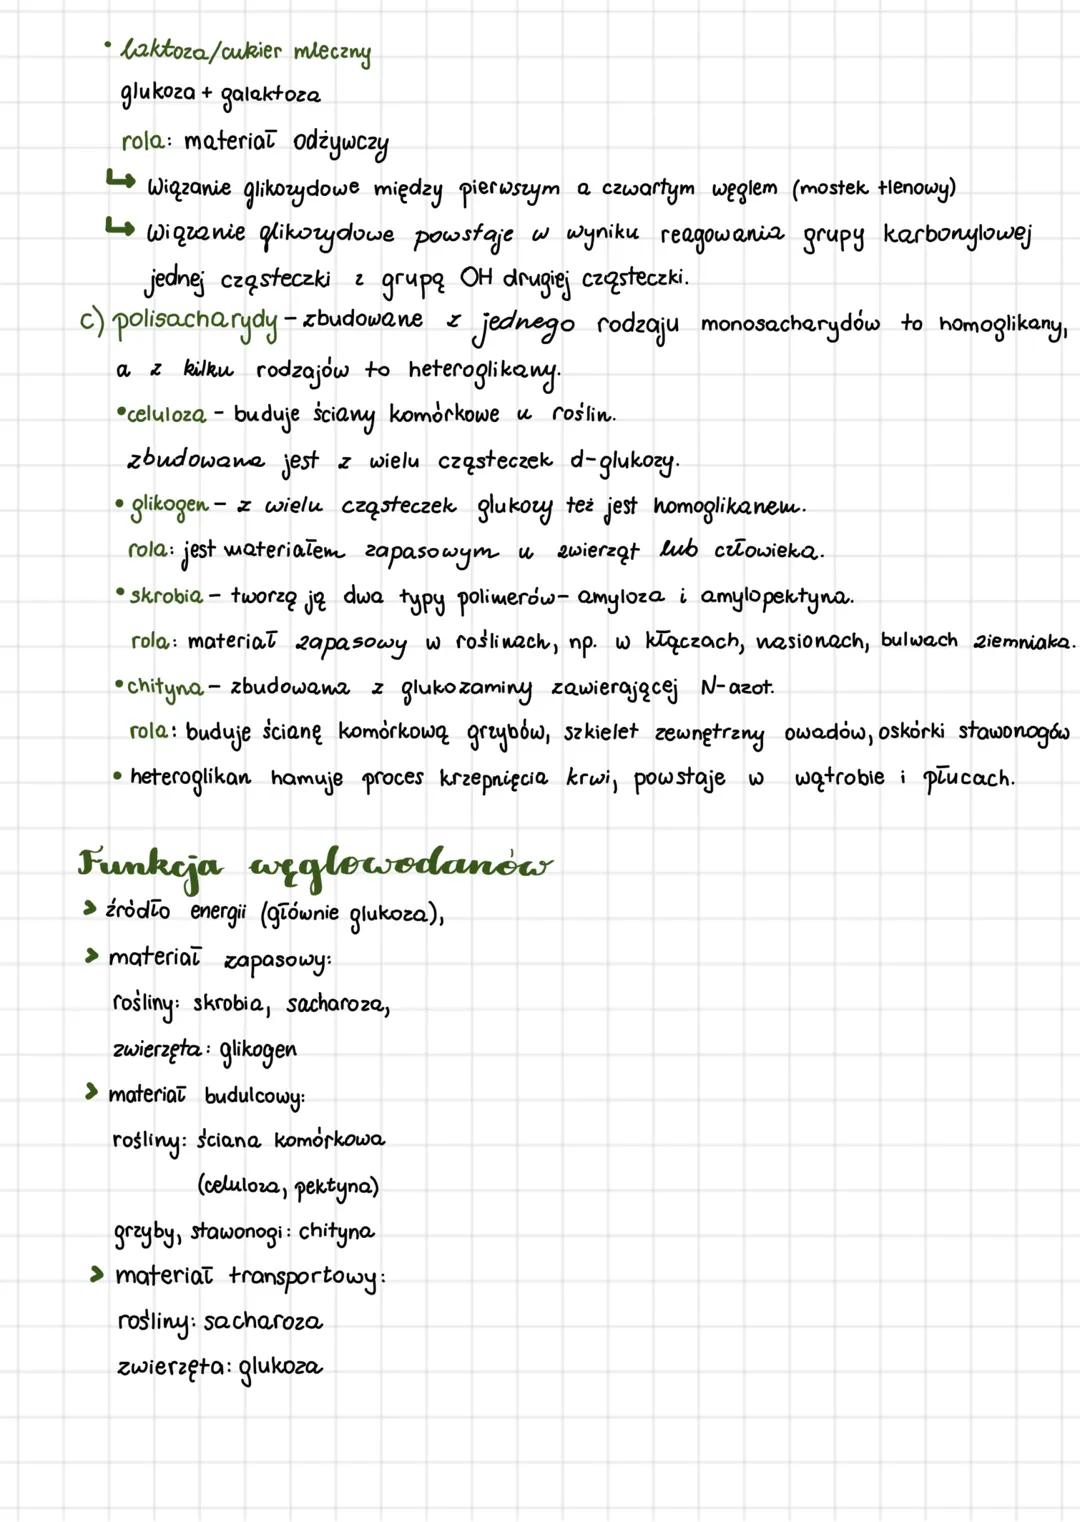 • laktoza/cukier mleczny
glukoza + galaktoza
rola: materiał odżywczy
↳ Wiązanie glikozydowe między pierwszym a czwartym węglem (mostek tlenowy)
↳ Wiązanie glikozydowe powstaje w wyniku reagowania grupy karbonylowej
jednej cząsteczki z grupą OH drugiej cząsteczki.
c) polisacharydy - zbudowane z jednego rodzaju monosacharydów to homoglikany,
a z kilku rodzajów to heteroglikany.
• celuloza - buduje ściany komórkowe u roślin.
zbudowana jest z wielu cząsteczek d-glukozy.
• glikogen - z wielu cząsteczek glukozy też jest homoglikanem.
rola: jest materiałem zapasowym u zwierząt lub człowieka.
• skrobia - tworzą ją dwa typy polimerów - amyloza i amylopektyna.
rola: materiał zapasowy w roślinach, np. w kłączach, nasionach, bulwach ziemniaka.
• chityna - zbudowana z glukozaminy zawierającej N-azot.
rola: buduje ścianę komórkową grzybów, szkielet zewnętrzny owadów, oskórki stawonogów
• heteroglikan hamuje proces krzepnięcia krwi, powstaje w wątrobie i płucach.
Funkcja węglowodanów
> źródło energii (głównie glukoza),
> materiał zapasowy:
rośliny: skrobia, sacharoza,
zwierzęta: glikogen
> materiał budulcowy:
rośliny: ściana komórkowa
(celuloza, pektyna)
grzyby, stawonogi: chityna
> materiał transportowy:
rośliny: sacharoza
zwierzęta: glukoza